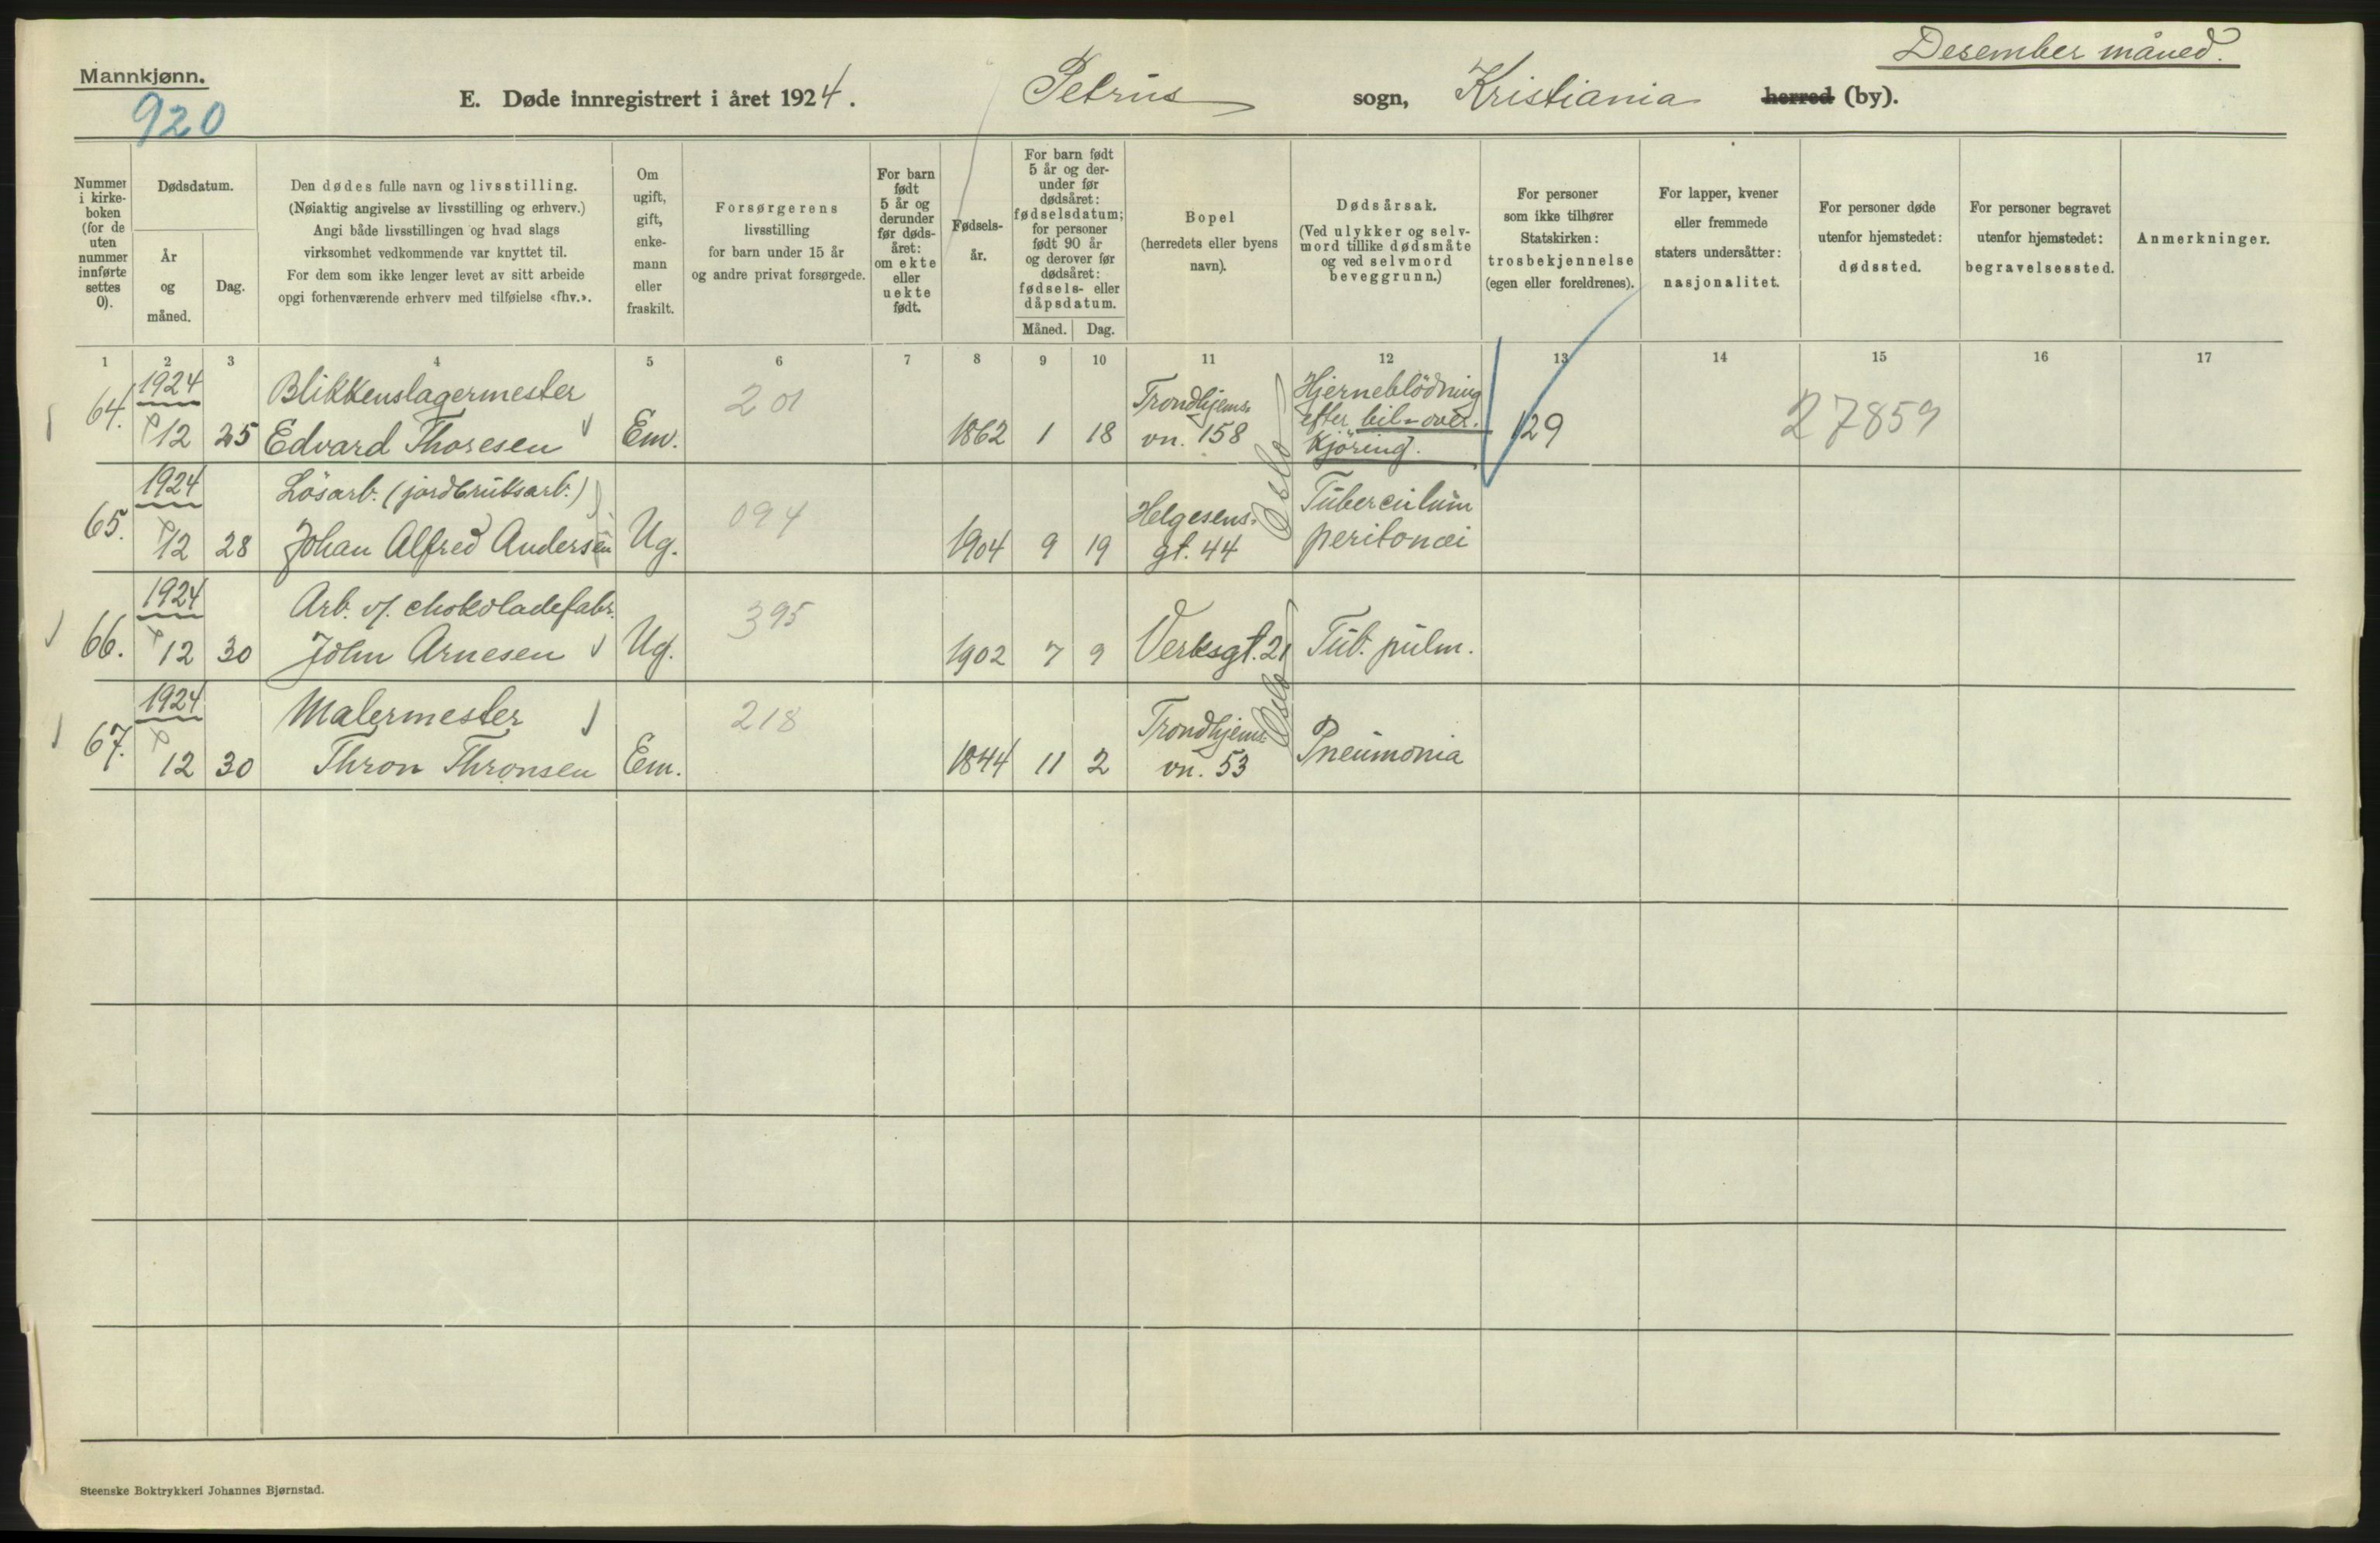 Desember måned.
Mannkjønn.
920
E. Døde innregistrert i året 1924. Petrus sogn, Kristiania herred (by).
Nummer i kirke- boken (for de uten nummer innførte settes 0).
Dødsdatum.
År og måned.
Dag.
Den dødes fulle navn og livsstilling.
(Nøiaktig angivelse av livsstilling og erhverv.)
Angi både livsstillingen og hvad slags
virksomhet vedkommende var knyttet til.
For dem som ikke lenger levet av sitt arbeide
opgi forhenværende erhverv med tilføielse «fhv.».
Om ugift, gift, enke- mann eller fraskilt.
Forsørgerens
livsstilling
for barn under 15 år
og andre privat forsørgede.
For barn født 5 år og derunder før døds- året: om ekte eller uekte født.
Fødsels- år.
For barn født 5 år og der- under før dødsåret: fødselsdatum; for personer født 90 år og derover før dødsåret: fødsels- eller dåpsdatum.
Måned. Dag.
Bopel
(herredets eller byens
navn).
Dødsårsak.
(Ved ulykker og selv-
mord tillike dødsmåte
og ved selvmord
beveggrunn.)
For personer
som ikke tilhører
Statskirken:
trosbekjennelse
(egen eller foreldrenes).
For lapper, kvener
eller fremmede
staters undersåtter:
nasjonalitet.
For personer døde
utenfor hjemstedet:
dødssted.
For personer begravet
utenfor hjemstedet:
begravelsessted.
Anmerkninger.
1 2 3 4 5 6 7 8 9 10 11 12 13 14 15 16 17
1924 Blikkenslagermester 201 Trondhjems- Hjerneblödning
64. 12 25 Edvard Thoresen Em. 1862 1 18 vn. 158 efter bil-over- 129 27859
kjöring.
Oslo
1924 Lösarb. (jordbruksarb.) 094 Helgesens- Tuberculum
65. 12 28 Johan Alfred Andersen Ug. 1904 9 19 gt. 44 peritonæi
1924 Arb. v/. chokoladefabr. 395
66. 12 30 John Arnesen Ug. 1902 7 9 Verksgt. 21 Tub. pulm.
Oslo
1924 Malermester 218 Trondhjems-
67. 12 30 Thron Thronsen Em. 1844 11 2 vn. 53 Pneumonia
Steenske Boktrykkeri Johannes Bjørnstad.